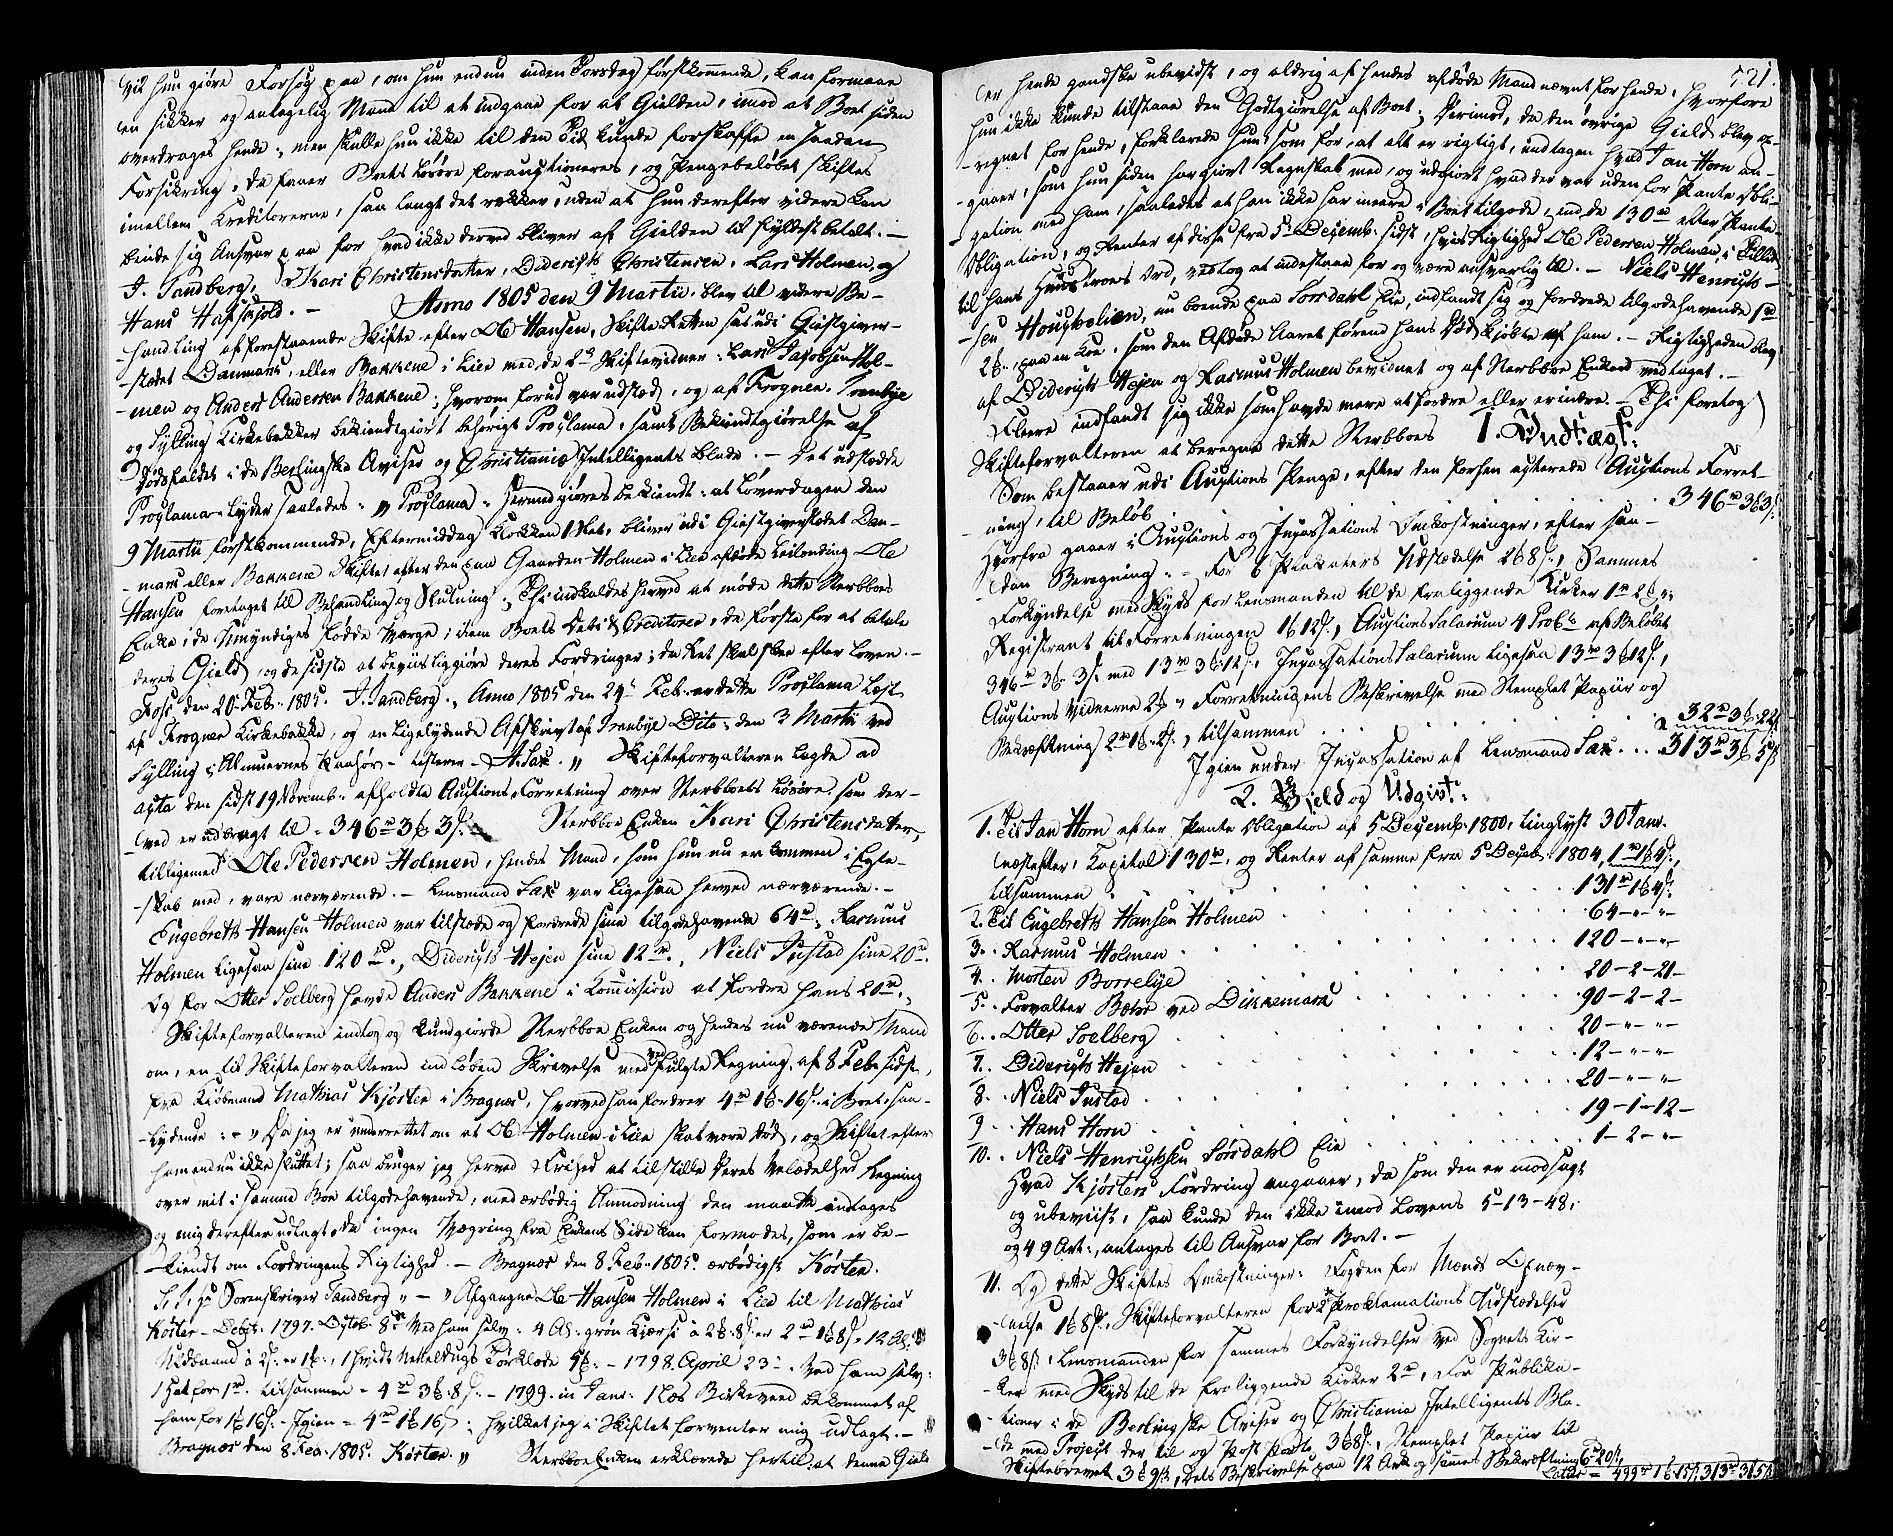 vil hun giøre Forsøg paa, om hun endnu inden Torsdag førstkommende, kan formaae
en sikker og antagelig Mand til at indgaae for at Gielden, imod at Boet siden
overdrages hende; men skulle hun ikke til den Tid kunde forskaffe en saadan
Forsikring, da faaer Boets Løsøre forauctioneres, og Pengebeløbet skiftes
imellem Creditorerne, saa langt det rækker, uden at hun derefter videre kan
binde sig Ansvar paa for hvad ikke derved bliver af Gielden til fyldest betalt. —
J. Sandberg, Kari Christensdatter, Diderich Christensen, Lars Holmen, og
Hans Hafskiold. — Anno 1805 den 9 Martii, blev til videre Be-
-handling af forestaaende Skifte efter Ole Hansen, Skifte Retten sat udi Giestgiver-
-stædet Danmark, eller Bakkene i Lier med de 2de Skiftevidner: Lars Jacobsen Hol-
-men og Anders Andersen Bakkene; hvorom forud var udstæd, og af Frogner, Tranbye
og Sylling Kirkebakker bekiendtgiort behørigt Proclama, samt Bekiendtgiørelse af
Dødsfaldet i de Berlingske Aviser og Christiania Intelligents Blade. — Det udstædte
Proclama lyder saaledes: „ Proclama: Hermed giøres bekiendt: at Løverdagen den
9 Martii førstkommende, Eftermiddag Klokken 1 Slet, bliver udi Giestgiverstædet Dan-
mark eller Bakkene Skiftet efter den paa Gaarden Holmen i Lier afdøde Leilænding Ole
Hansen foretaget til Behandling og Slutning; Thi indkaldes herved at møde dette Sterbboes
Enke, i de Umyndiges fødde Værge; item Boets Debit & Creditorer, de første for at betale
deres Gield, og de sidste at beviisliggiøre deres Fordringer; da Ret skal skee efter Loven. —
Foss den 20 Feb. 1805. J. Sandberg., Anno 1805 den 24 Feb. er dette Proclama læst
af Frogner Kirkebakke, og en ligelydende Afskrivt af Tranbye Dito, den 3 Martii ved
Sylling i Almuernes Paahør – testerer – A. Sax. „ Skifteforvalteren lagde ad
acta den sidst 19 Novemb. afholdte Auctions Forretning over Sterbboets Løsøre, som der-
-ved er udbragt til = 346 rd 3 ß 3 s. Sterbboe Enken Kari Christensdatter,
tilligemed Ole Pedersen Holmen, hendes Mand, som hun nu er kommen i Egte-
-skab med, vare nærværende. — Lensmand Sax var ligesaa herved nærværende. —
Engebreth Hansen Holmen var tilstæde og fordrede sine tilgodehavende 64 rd, Rasmus
Holmen ligesaa sine 120 rd, Diderich Hejen sine 12 rd, Niels Justad sine 20 rd.
Og for Otter Solberg havde Anders Bakkene i Commission at fordre hans 20 rd.,
Skifteforvalteren indtog og kundgiorde Sterbboe Enken og hendes nu værende Mand
om, en til Skifteforvalteren indløben Skrivelse medfulgte Regning, af 8 Feb. sidst,
fra Kiøbmand Mathias Kjørter i Bragnæs, hvorved han fordrer 4 rd 1 ß 16 s. i Boet, saa-
-lydende: – „ Da jeg er underrettet om at Ole Holmen i Lier skal være død, og Skiftet efter
ham endnu ikke sluttet; saa bruger jeg herved Frihed at tilstille Deres Velædelhed Regning
over mit i samme Boe tilgodehavende, med ærbødig Anmodning den maatte indtages
og mig derefter udlagt, da ingen Vægring fra Enkens Side kan formodes, som er be-
-kiendt om Fordringens Rigtighed. — Bragnæs den 8 Feb. 1805. ærbødigst Kørter.
S. T. Hr Sorenskriver Sandberg „ – „ Afgangne Ole Hansen Holmen i Lied til Mathias
Kørter – Debet: 1797. Octob. 8de Ved ham selv: 4 Al: grøn Kjersi à 2 ß 8 s er 2 rd 1 ß 8 s – 12 Al:
Uldbaand à 2 s: er 1 ß, 1 hvidt Netteldugs Tørklæde 5 ß: – 1798. April 23 – Ved ham selv:
1 Hat for 1 rd. tilsammen = 4 rd 3 ß 8 s. – 1799. in Janr: 1 Læs Birkeveed bekommet af
ham for 1 ß 16 s. – Igien = 4 rd 1 ß 16 s: hvilket jeg i Skiftet forventer mig udlagt. —
Bragnæs den 8 Feb. 1805. Kørter. „ Sterbboe Enken erklærede hertil: at denne Gield
721.
er hende gandske ubevidst, og aldrig af hendes afdøde Mand nævnt for hende; hvorfore
hun ikke kunde tilstaae den Godtgiørelse af Boet; Derimod, da den øvrige Gield blev op-
-regnet for hende, forklarede hun som før, at alt er rigtigt, undtagen hvad Jan Horn an-
-gaaer, som hun siden har giort Regnskab med, og udgiort hvad der var uden for Pante Obli-
-gation med ham, saaledes at han ikke har meere i Boet tilgode, end de 130 rd efter Pante-
Obligation, og Renter af disse fra 5te Decemb: sidst, hvis Rigtighed Ole Pedersen Holmen, i Tillid
til hans Hustroes Ord, vedtog at indestaae for og være ansvarlig til. — Niels Henrich-
-sen Houghelien, nu boende paa Sørsdahl Eie, indfandt sig og fordrede tilgodehavende 1 rd
2 ß, paa en Koe, som den Afdøde Aaret førend hans Død kjøbte af ham. — Rigtigheden blev
af Diderich Hejen og Rasmus Holmen bevidnet og af Sterbboe Enken vedtaget. —
Fleere indfandt sig ikke som havde mere at fordre eller erindre. — Thi foretog
Skifteforvalteren at beregne dette Sterbboes 1. Indtægt:
Som bestaaer udi Auctions Penge, efter den forhen acterede Auctions Forret-
-ning, til Beløb . . . . . 346 rd 3 ß 3 s.
Hvorfra gaaer i Auctions og Incassations Omkostninger, efter saa-
-dan Beregning: – For 6 Placaters Udstædelse 2 ß 8 s, Sammes
Forkyndelse med Skyds for Lensmanden til de fraliggende Kirker 1 rd 2 ß „:
Registrant til Forretningen 1 ß 12 s, Auctions Salarium 4 Proc to af Beløbet
346 rd 3 ß 3 s: med 13 rd 3 ß 12 s, Incassations Salarium ligesaa 13 rd 3 ß 12 s,
Auctions Vidnerne 2 ß „ Forretningens Beskrivelse med Stemplet Papiir og
Bekræftning 2 rd 1 ß 2 s, tilsammen . . . . 32 rd 3 ß 22 s
Igien under Incassation af Lensmand Sax . . . 313 rd 3 ß 5 s
2. Gield og Udgivt:
1. Til Jan Horn efter Pante Obligation af 5 Decemb: 1800, tinglyst 30 Janr.
næstefter, Capital 130 rd, og Renter af samme fra 5 Decb: 1804, 1 rd 1 ß 4 s,
tilsammen . . . . . 131 rd 1 ß 4 s
2. Til Engebreth Hansen Holmen . . . . . 64 – „ – „ –
3. . Rasmus Holmen . . . . . 120 – „ – „ –
4. . Morten Borrebye . . . . . 20 – 2 – 21 –
5. . Forvalter Bæhr ved Dikkemark . . . . . 90 – 2 – 2 –
6. . Otter Solberg . . . . . 20 – „ – „ –
7. . Diderich Hejen . . . . . 12 – „ – „ –
8. . Niels Justad . . . . . 20 – „ – „ –
9 . . Hans Horn . . . . . 19 – 1 – 12 –
10. . Niels Henrichsen Sørsdahl Eie . . . . . 1 – 2 – „ –
Hvad Kjørters Fordring angaaer, da som den er modsagt
og ubeviist, saa kunde den ikke imod Lovens 5 – 13 – 48,
og 49 Art:, antages til Ansvar for Boet. —
11. Og dette Skiftes Omkostninger: Fogden for Mænds Opnæv-
-nelse 1 ß 8 s, Skifteforvalteren for 2de Proklamations Udstædelser
3 ß 8 s, Lensmanden for sammes Forkyndelser ved Sognets Kir-
-ker med Skyds til de fraliggende Kirker 2 rd, For Publika-
-tioner i de Berlingske Aviser og Christiania Intelligents Bla-
-de med Project der til og Post Porto 3 ß 8 s, Stemplet Papiir til
Skiftebrevet 3 ß 9 s, Dets Beskrivelse paa 12 Ark og sammes Bekræftning 6 rd 20 s,
Latus = 499 rd 1 ß 15 s, 313 rd 3 ß 5 s